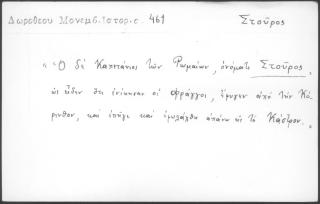 Δωροθεου Μονεμβ. Ιστορ. σ. 461
Στοῦρος
"Ὁ δὲ Καπετάνιος τῶν Ρωμαίων, ὀνόματι Στοῦρος,
ὡς εἶδεν ὅτι ἐνίκησαν οἱ Φράγγοι, ἔφυγεν ἀπὸ τὴν Κό-
ρινθον, καὶ ἐπῆγε καὶ ἐφυλάχθη ἀπάνω εἰς τὸ Κάστρον."